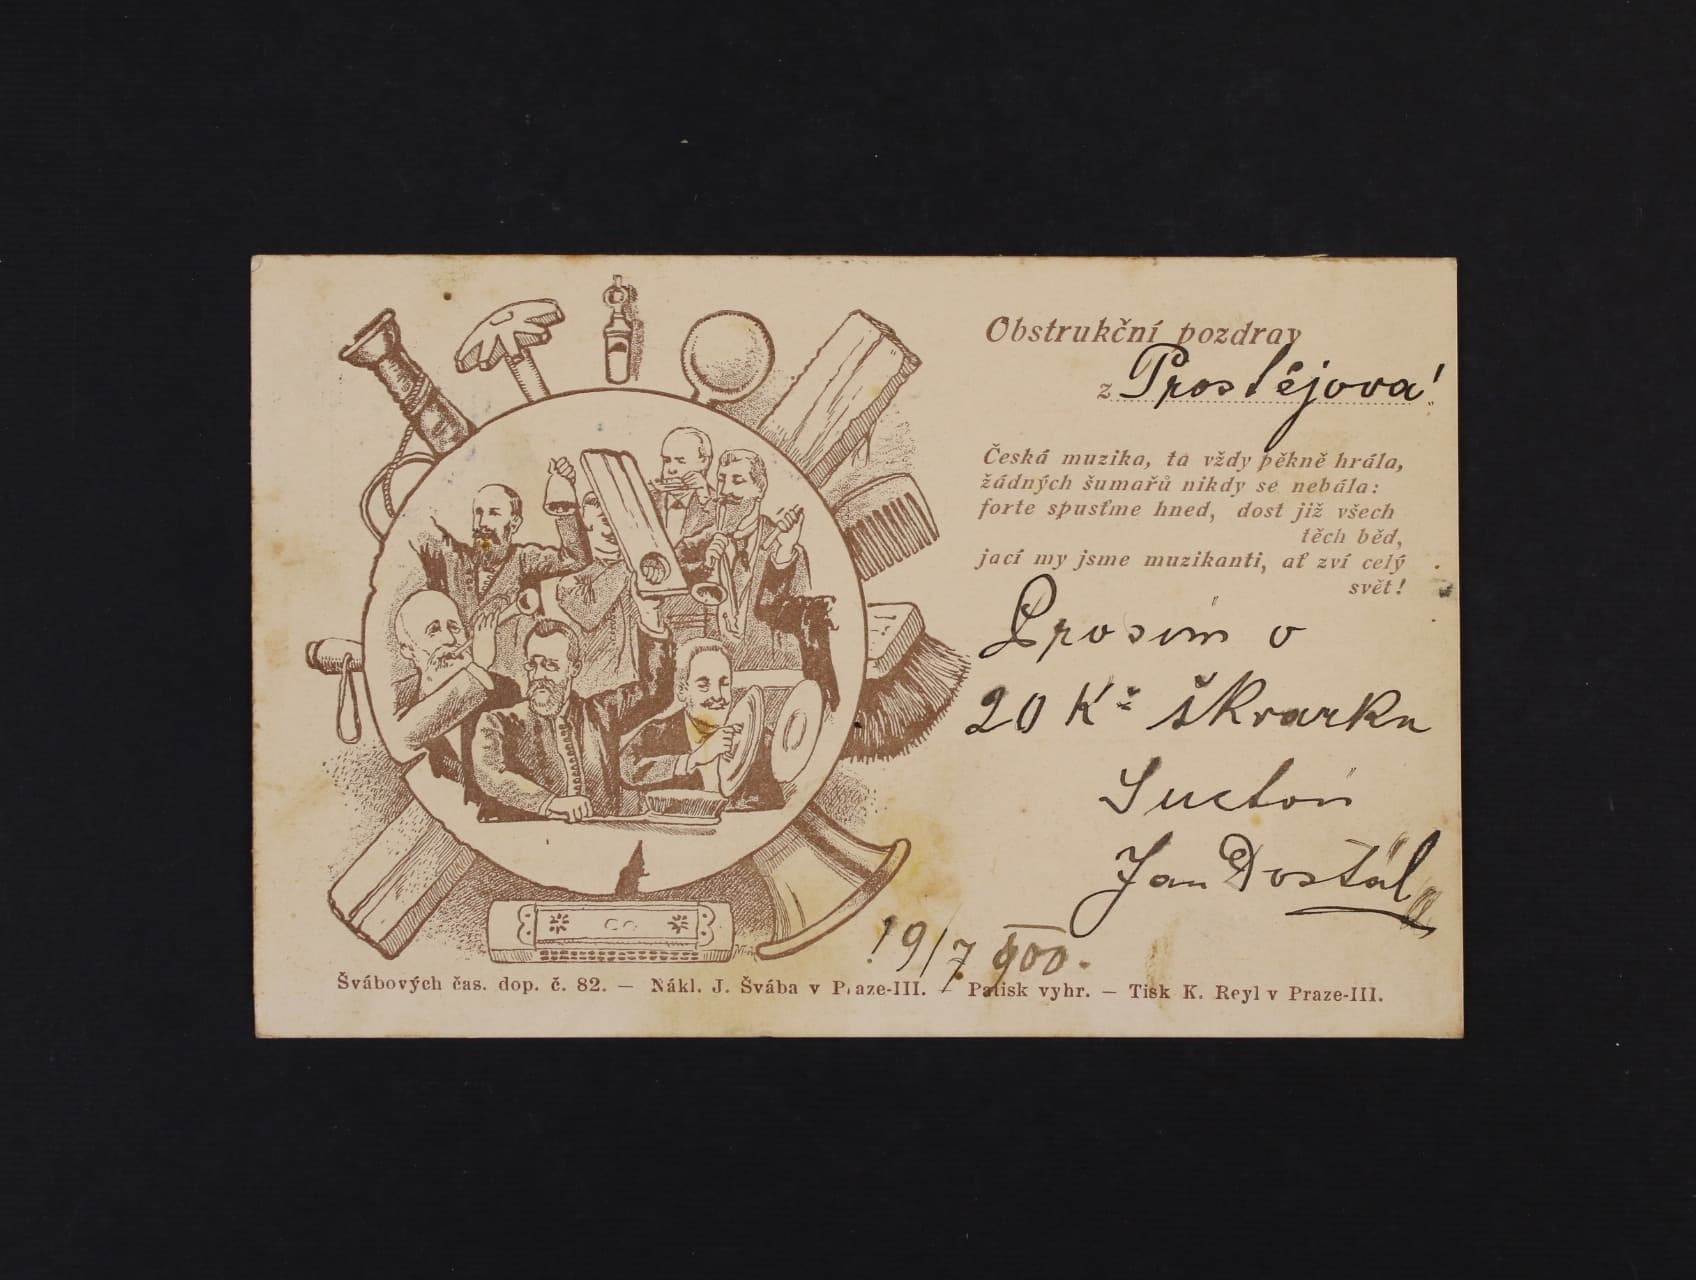 Obstrukční pozdrav
z Prostějova!
Česká muzika, ta vždy pěkně hrála,
žádných šumařů nikdy se nebála:
forte spusťme hned, dost již všech
těch běd,
jací my jsme muzikanti, ať zví celý
svět!
Prosím o
20 Kº škvarku
Jan Dostál
19/7 900.
Švábových čas. dop. č. 82. — Nákl. J. Švába v Praze-III. — Patisk vyhr. — Tisk K. Reyl v Praze-III.